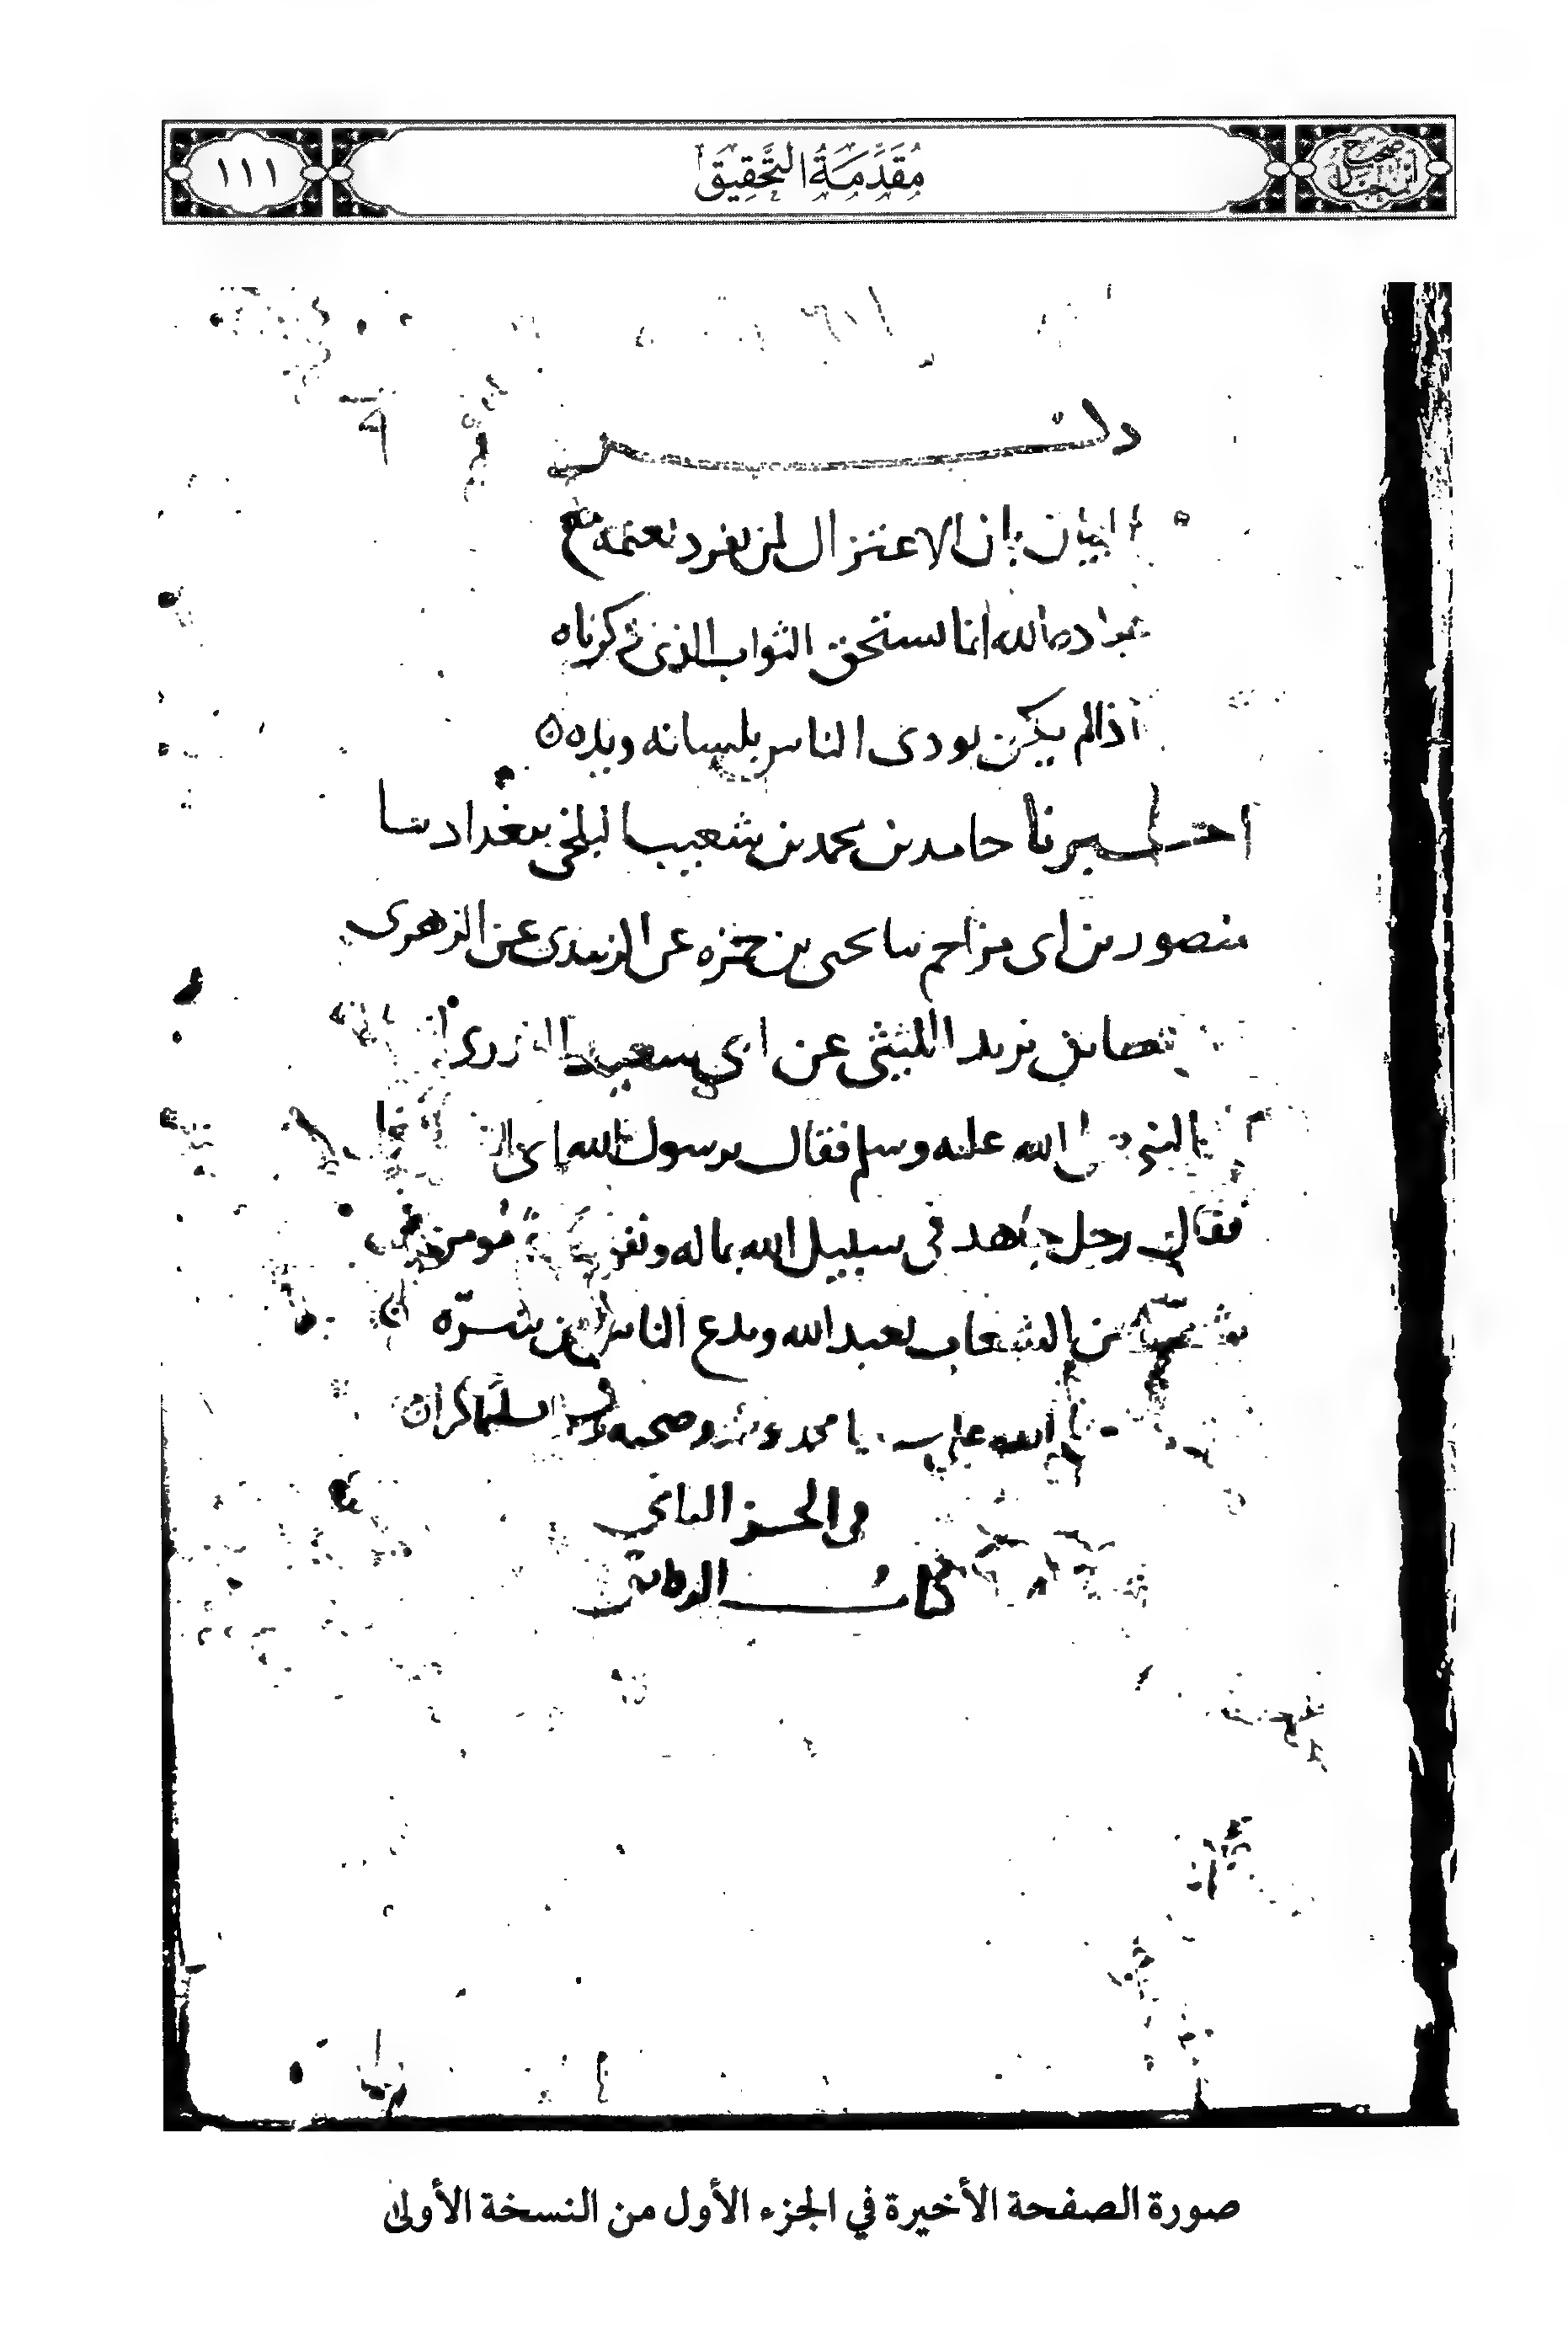 صحيح ابن حبان
مقدمة التحقيق
١١١
ذكر
البيان بان الاعتزال لمن تفرد بغنمه مع
عباده الله انما يستحق الثواب الذي ذكرناه
اذا لم يكن يودى الناس بلسانه ويده
اخبرنا حامد بن محمد بن شعيب البلخي ببغداد سا
منصور بن ابى مزاحم سا يحيى بن حمزه عن الزبيدى عن الزهرى
عطا بن يزيد الليثي عن ابى سعيد الخدرى
النبي صلى الله عليه وسلم فقال يرسول الله اى
فقال رجل جاهد فى سبيل الله بماله ونفسه مومن فى
شعب من الشعاب يعبد الله ويدع الناس من شره
الله على محمد وصحبه وسلم
فى الجز الثانى
كتاب الرقايق
صورة الصفحة الأخيرة في الجزء الأول من النسخة الأولى